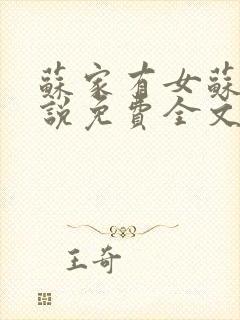 蘇家有女蘇
說免費全文
王奇